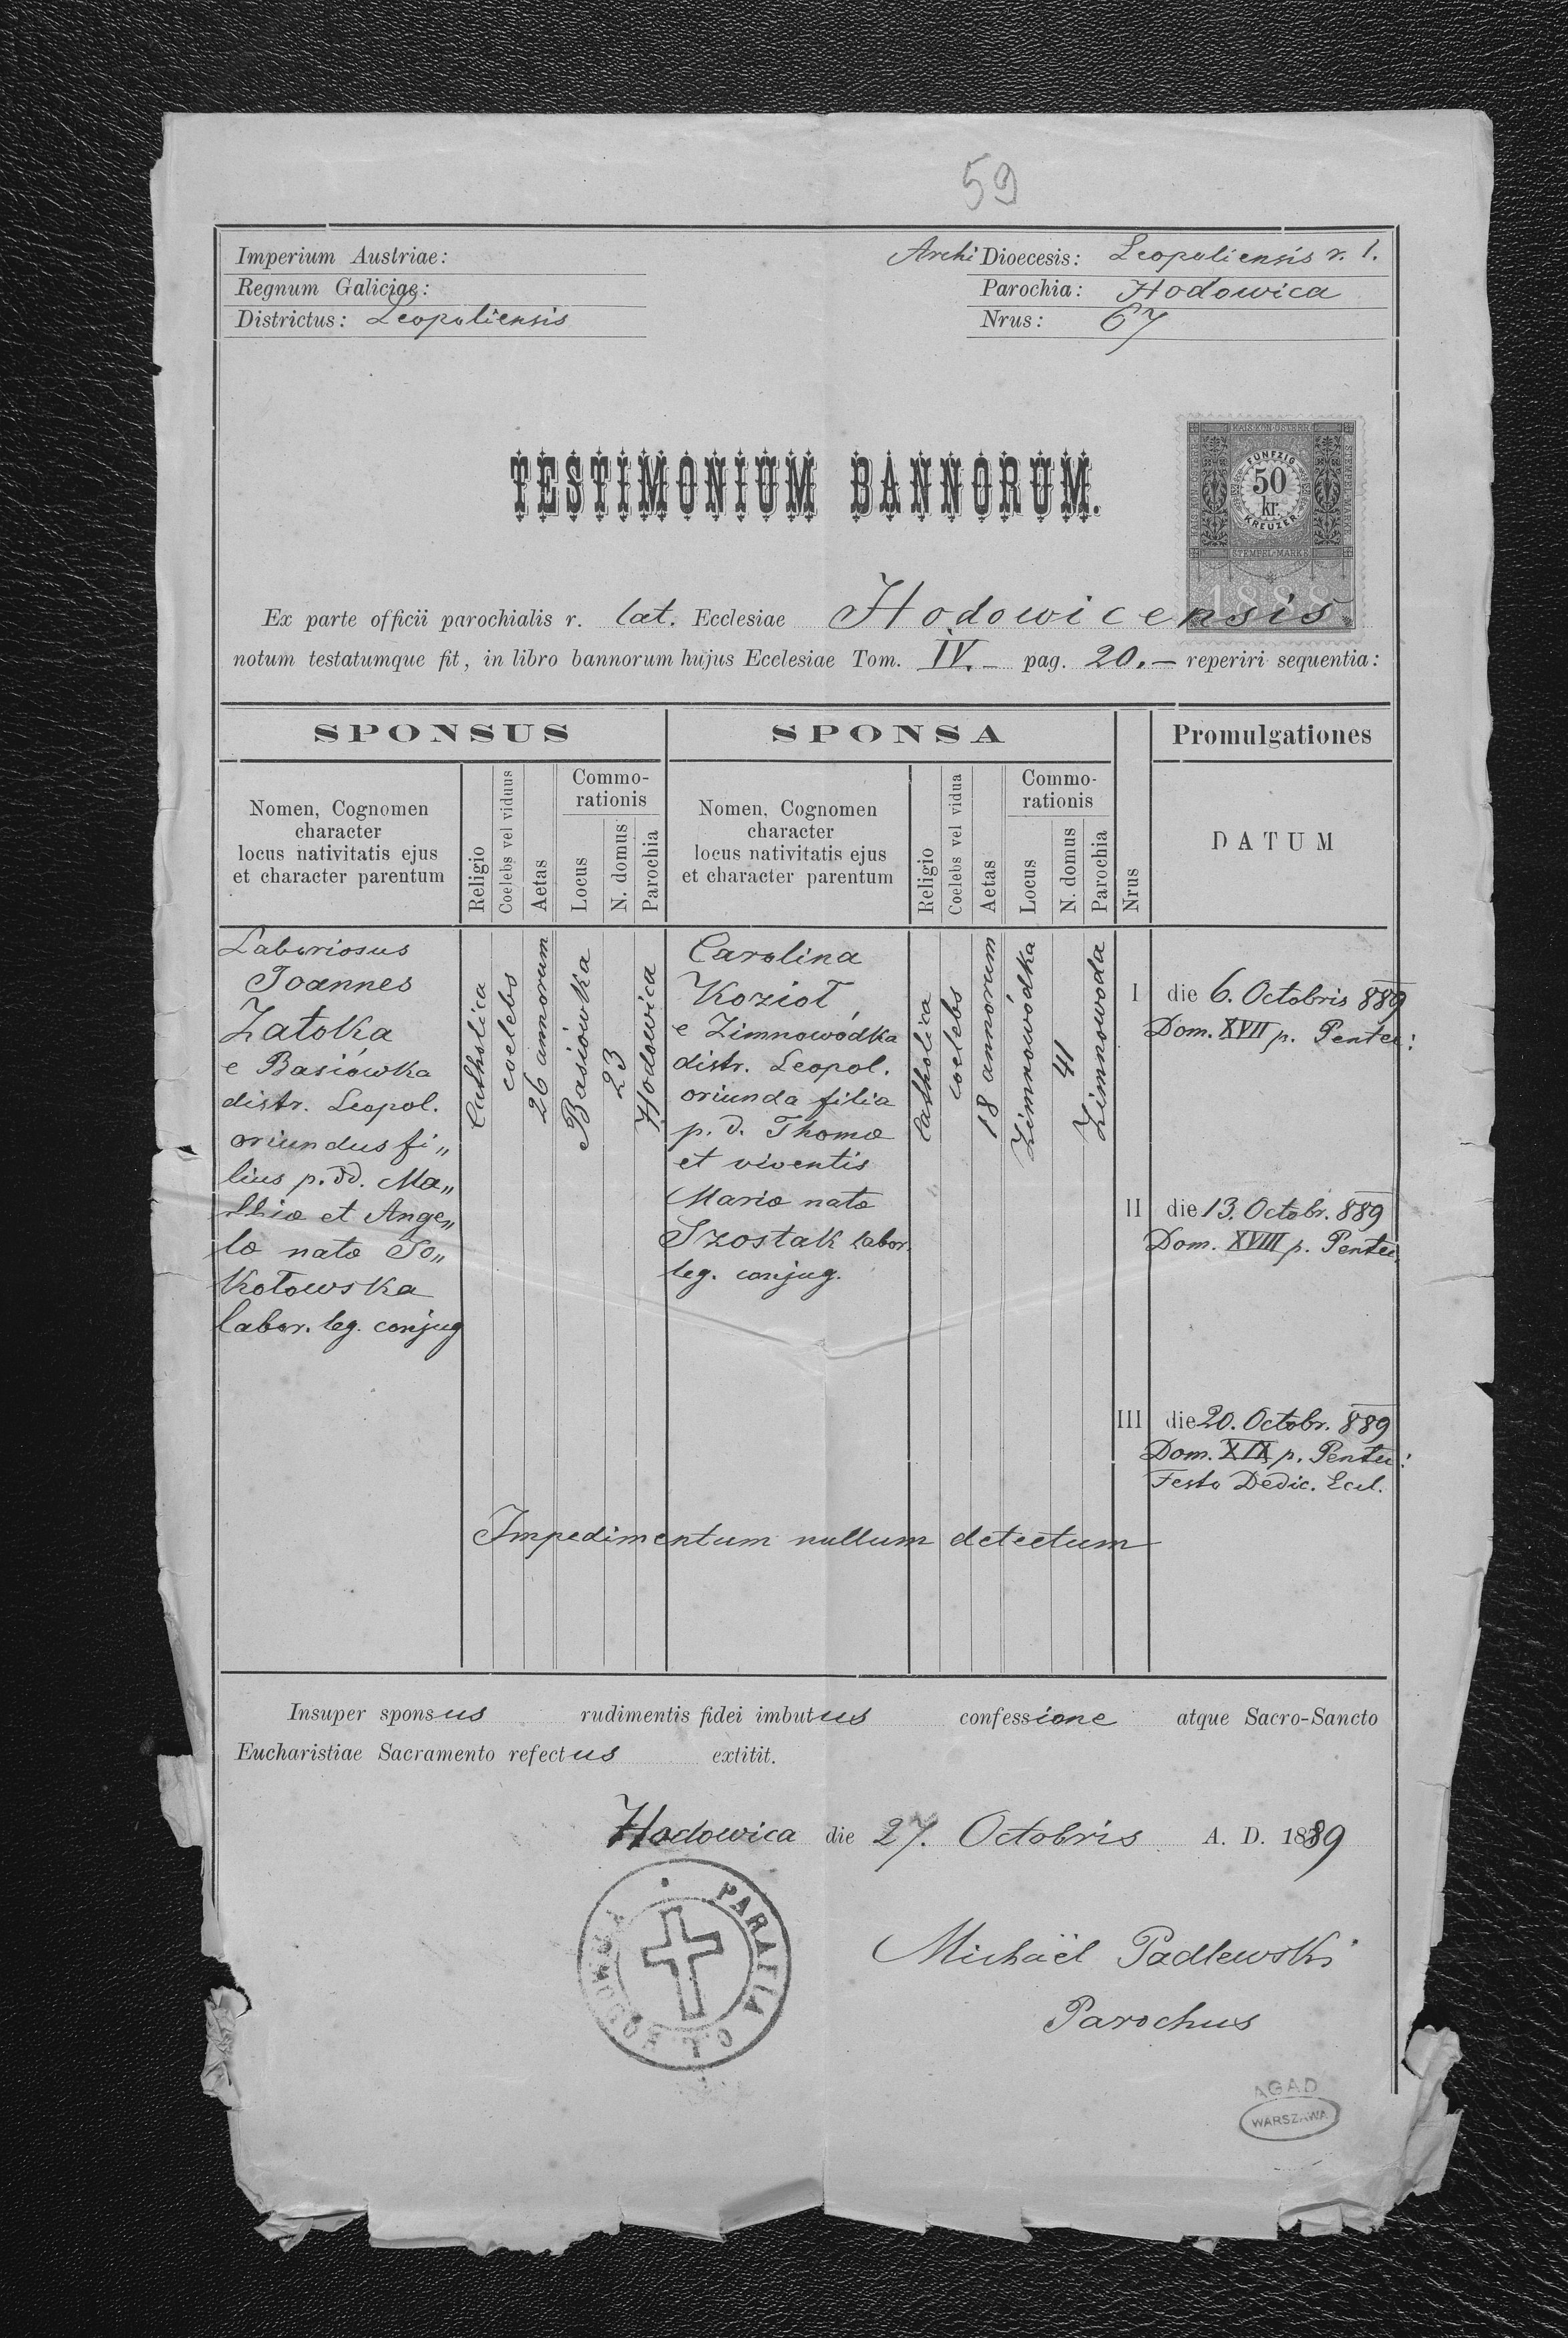 59
Imperium Austriae:
Regnum Galiciae:
Districtus: Leopoliensis
Archi Dioecesis: Leopoliensis r. l.
Parochia: Hodowica
Nrus: 67
TESTIMONIUM BANNORUM.
KAIS.KÖN.ÖSTERR.
FÜNFZIG
50
kr.
KREUZER
STEMPEL-MARKE
1888
Ex parte officii parochialis r. lat. Ecclesiae Hodowicensis
notum testatumque fit, in libro bannorum hujus Ecclesiae Tom. IV.– pag. 20.– reperiri sequentia:
SPONSUS
Nomen, Cognomen
character
locus nativitatis ejus
et character parentum
Religio
Coelebs vel viduus
Aetas
Commo-
rationis
Locus
N. domus
Parochia
SPONSA
Nomen, Cognomen
character
locus nativitatis ejus
et character parentum
Religio
Coelebs vel vidua
Aetas
Commo-
rationis
Locus
N. domus
Parochia
Nrus
Promulgationes
DATUM
Laboriosus
Joannes
Zatoka
e Basiówka
distr. Leopol.
oriundus fi„
lius p. dd. Ma„
thiæ et Ange„
læ natæ So„
kołowska
labor. leg. conjug
Catholica
coelebs
26 annorum
Basiówka
23
Hodowica
Carolina
Kozioł
e Zimnowódka
distr. Leopol.
oriunda filia
p. d. Thomæ
et viventis
Mariæ natæ
Szostak labor.
leg. conjug.
Catholica
coelebs
18 annorum
Zimnowódka
41
Zimnowoda
I die 6. Octobris 889
Dom. XVII p. Pentec:
II die 13. Octobr. 889
Dom. XVIII p. Pentec.
III die 20. Octobr. 889
Dom. XIX p. Pentec:
Festo Dedic. Eccl.
Impedimentum nullum detectum
Insuper sponsus rudimentis fidei imbutus confessione atque Sacro-Sancto
Eucharistiae Sacramento refectus extitit.
Hodowica die 27. Octobris A. D. 1889
PARAFIA O. Ł. HODOWICA
Michaël Padlewski
Parochus
AGAD
WARSZAWA